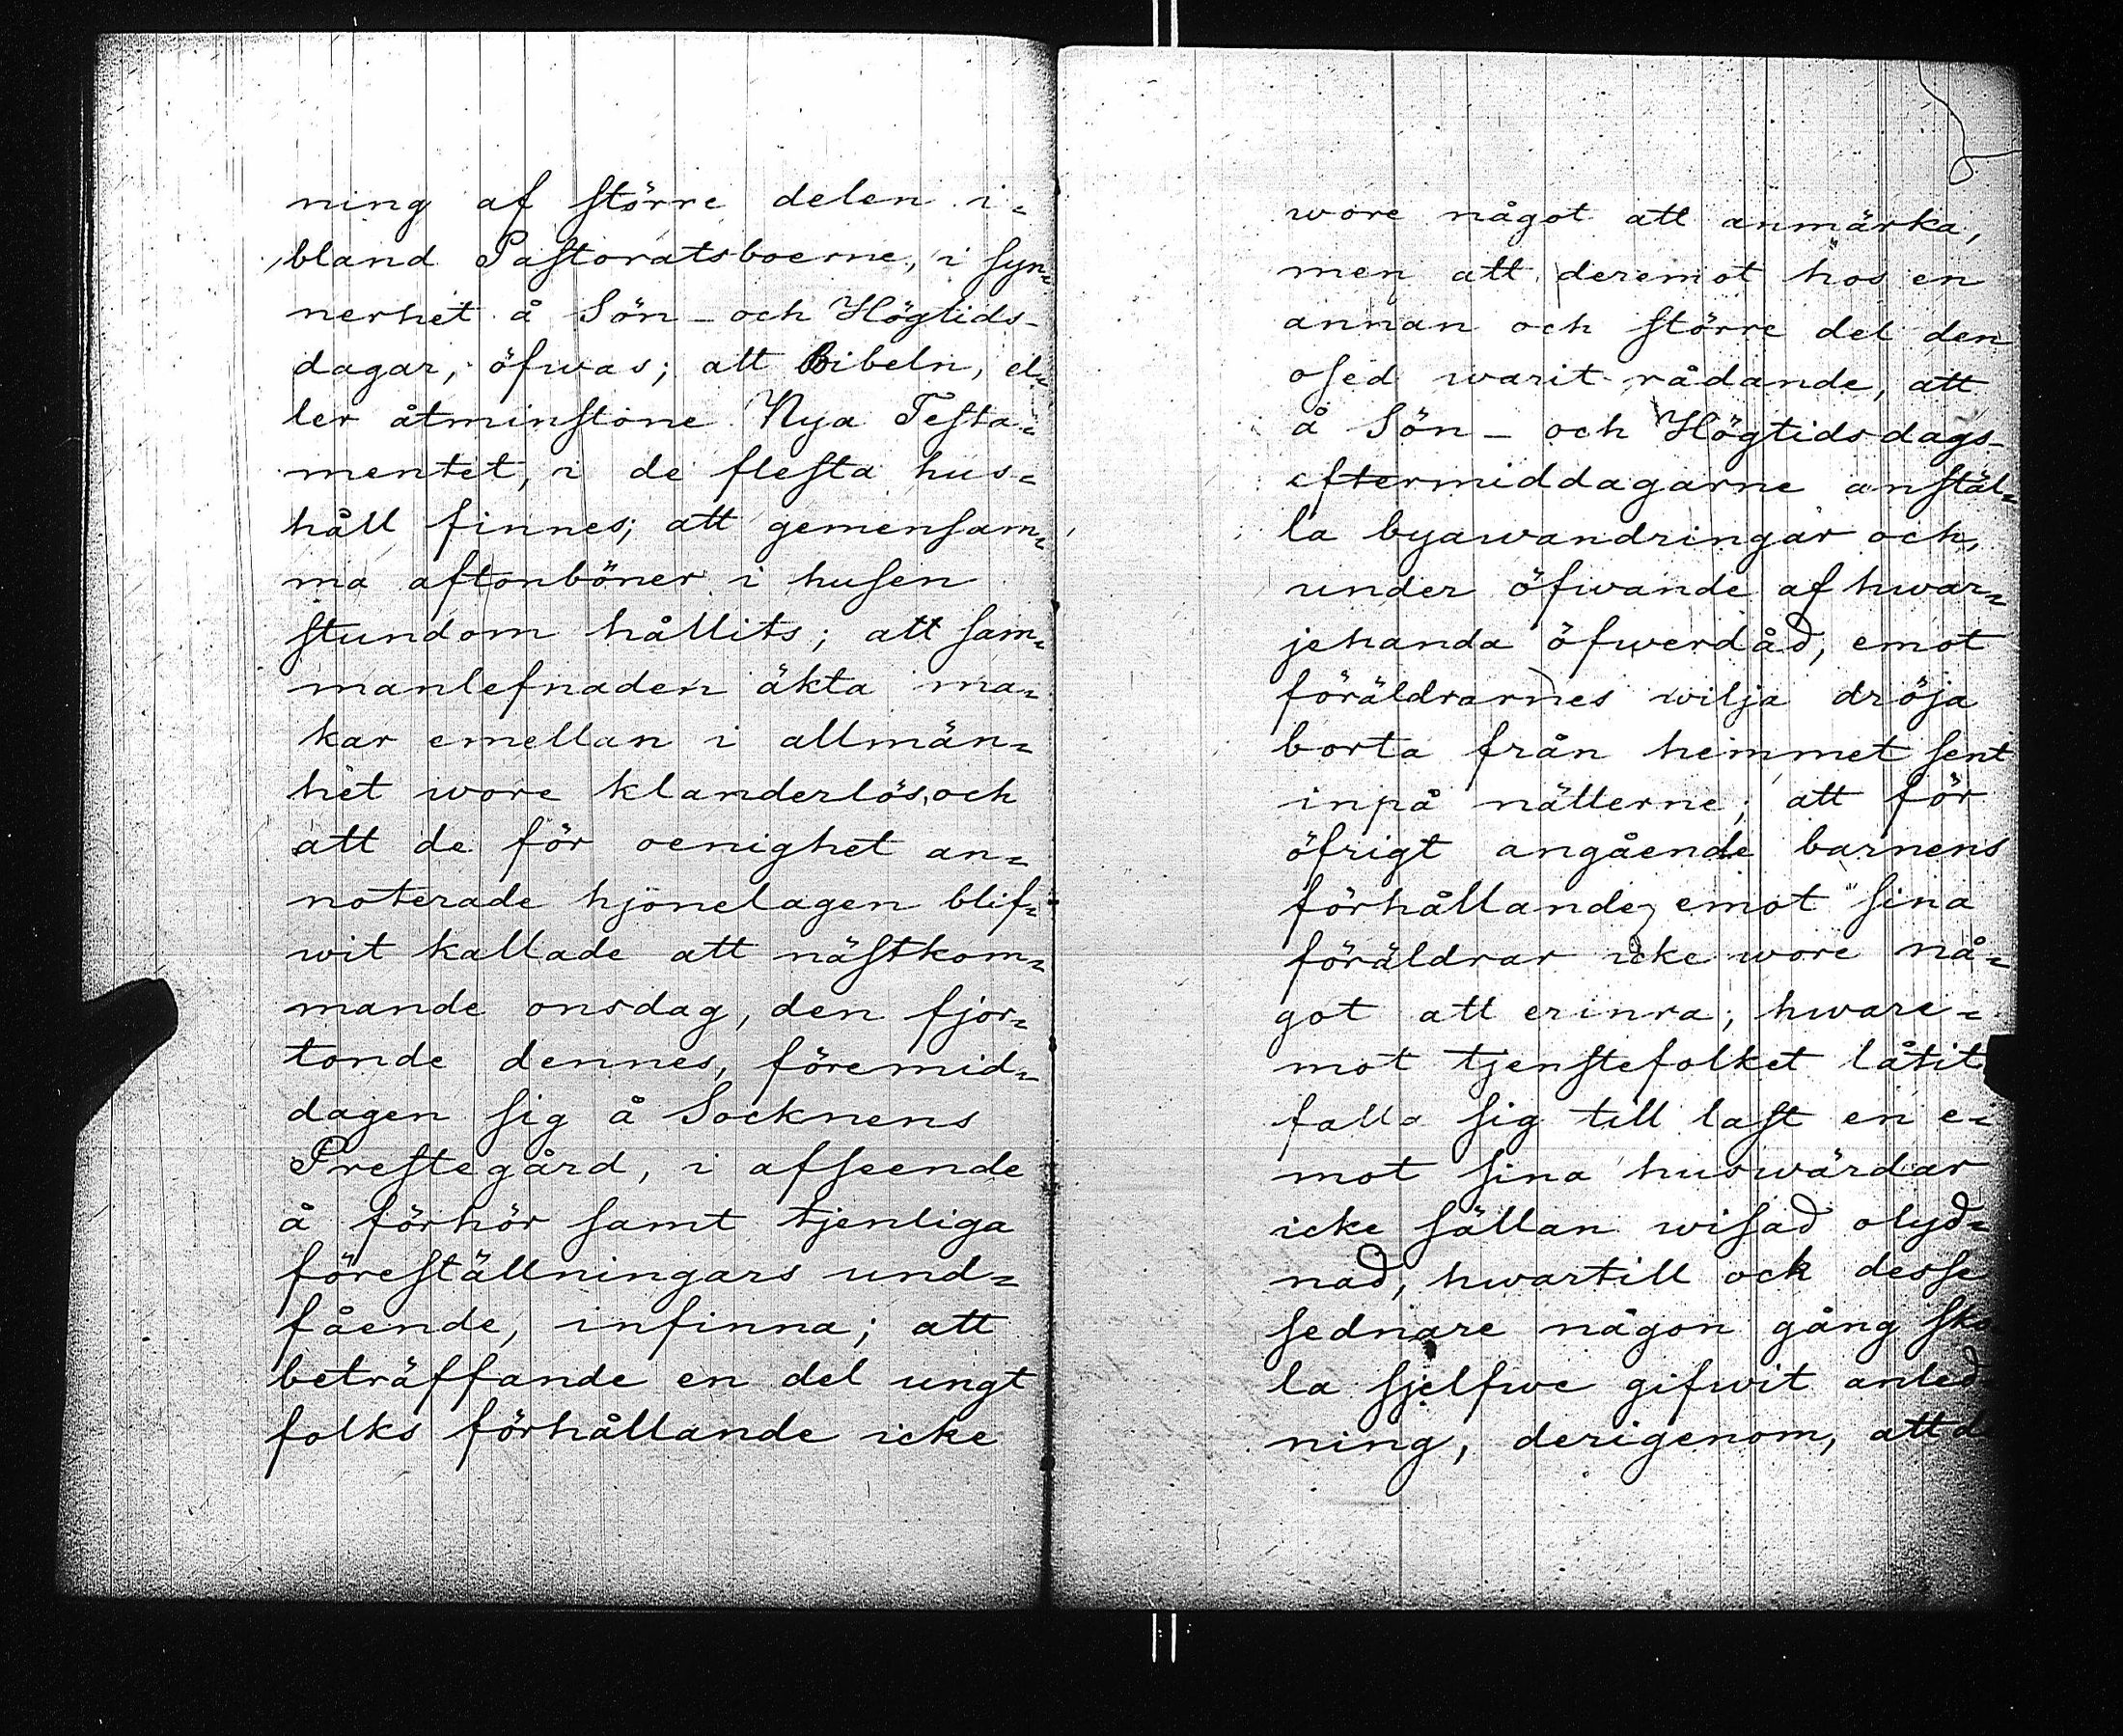 ning af större delen i=
bland Pastoratsboerne, i syn=
nerhet å Sön- och Högtids-
dagar, öfwas; att Bibeln, el=
ler åtminstone Nya Testa=
mentet, i de flesta hus=
håll finnes; att gemensam=
ma aftonböner i husen
stundom hållits; att sam=
manlefnaden äkta ma=
kar emellan i allmän=
het wore klanderlös, och
att de för oenighet an=
noterade hjonelagen blif=
wit kallade att nästkom=
mande onsdag, den fjor=
tonde dennes, föremid=
dagen sig å Socknens
Prestegård, i afseende
å förhör samt tjenliga
föreställningars und=
fående, infinna; att
beträffande en del ungt
folks förhållande icke
wore något att anmärka,
men att deremot hos en
annan och större del den
osed warit rådande, att
å Sön- och Högtidsdags-
eftermiddagarne anstäl=
la byawandringar och,
under öfwande af hwar=
jehanda öfwerdåd, emot
föräldrarnes wilja dröja
borta från hemmet sent
inpå nätterne; att för
öfrigt angående barnens
förhållande emot sina
föräldrar icke wore nå=
got att erinra; hware=
mot tjenstefolket låtit
falla sig till last en e=
mot sina huswärdar
icke sällan wisad olyd=
nad, hwartill ock desse
sednare någon gång sko
la sjelfwe gifwit anled=
ning, derigenom, att de